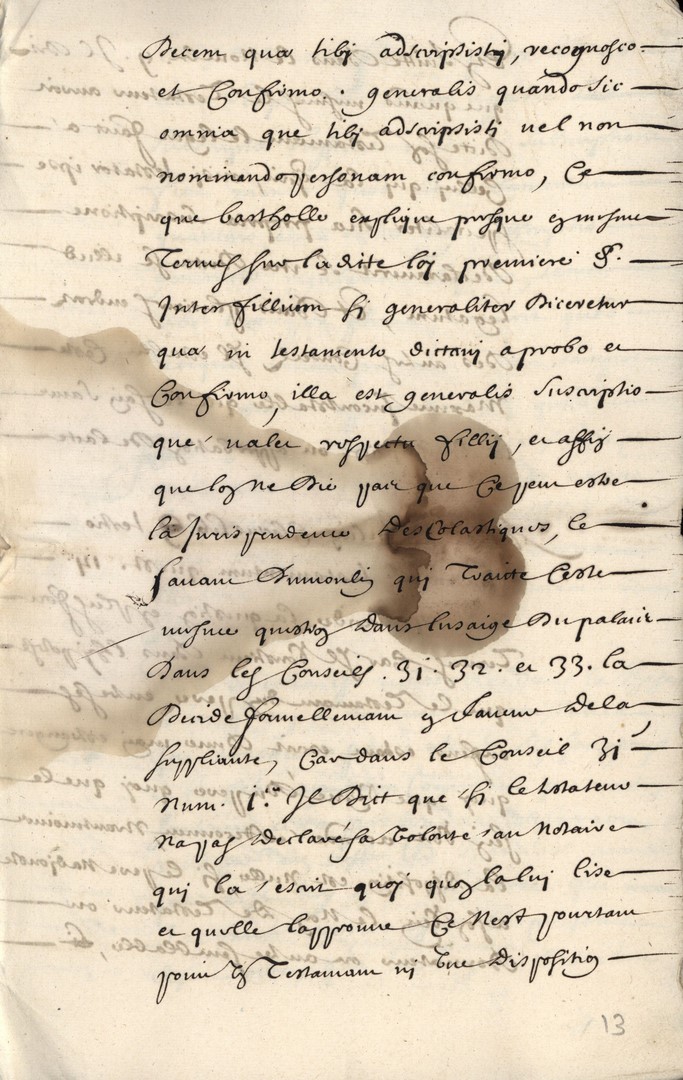 Decem quæ tibj adscripsistj, recognosco
et Confirmo. generalis quando sic
omnia que tibj adscripsisti vel non
nominando personam confirmo, Ce
que bartholle explique presque es mesme
Termes sur la ditte loj premiere §.
Inter fillium si generaliter Diceretur
qua in testamento dictavj aprobo et
Confirmo, illa est generalis suscriptio
que valet respectu fillij, et affin
que lon ne Die pas que Ce peut estre
la Jurisprudence Des Colastiques, le
savant Dumoulin qui Traicte Ceste
mesme question Dans lusaige Du palais
Dans les Conseils. 31. 32. et 33. la
Decide formellement en faveur de la
suppliante, Car dans le Conseil 31
Num. 1. Il Dict que si le testateur
na pas declaré sa Volonté au Notaire
qui la escrit quoj quon la lui lise
et quelle lapprouve Ce Nest pourtant
point Un Testament ni Une Disposition
13